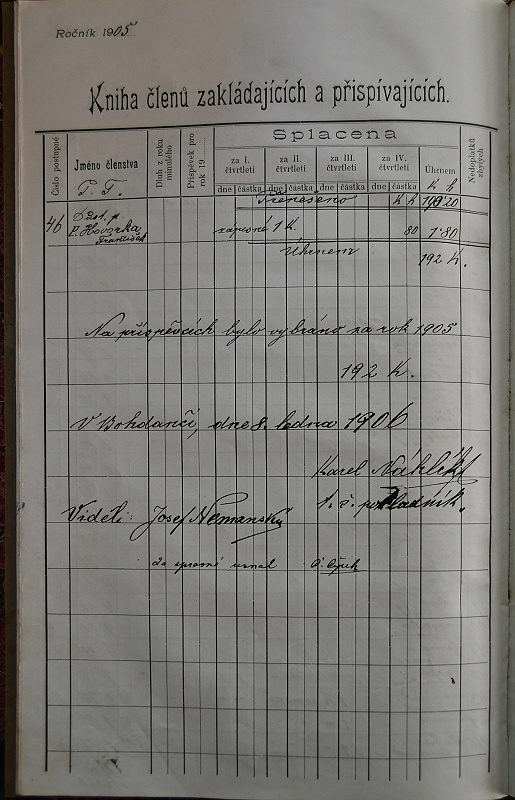 Ročník 1905
Kniha členů zakládajících a přispívajících.
Číslo postupné
Jméno členstva
P. T.
Dluh z roku minulého
Příspěvek pro rok 19
Splacena
za I. čtvrtletí
za II. čtvrtletí
za III. čtvrtletí
za IV. čtvrtletí
Úhrnem
Nedoplatků zbylých
dne částka dne částka dne částka dne částka K h
Přenešeno K h 190·20
46 Důst. p. P. Hovorka František zápisné 1 K. 80 1·80
Úhrnem 192 K.
Na příspěvcích bylo vybráno za rok 1905
192 K.
V Bohdanči, dne 8. ledna 1906
Karel
t. č. pokladník.
Viděli: Josef Nemanský
za správné uznal